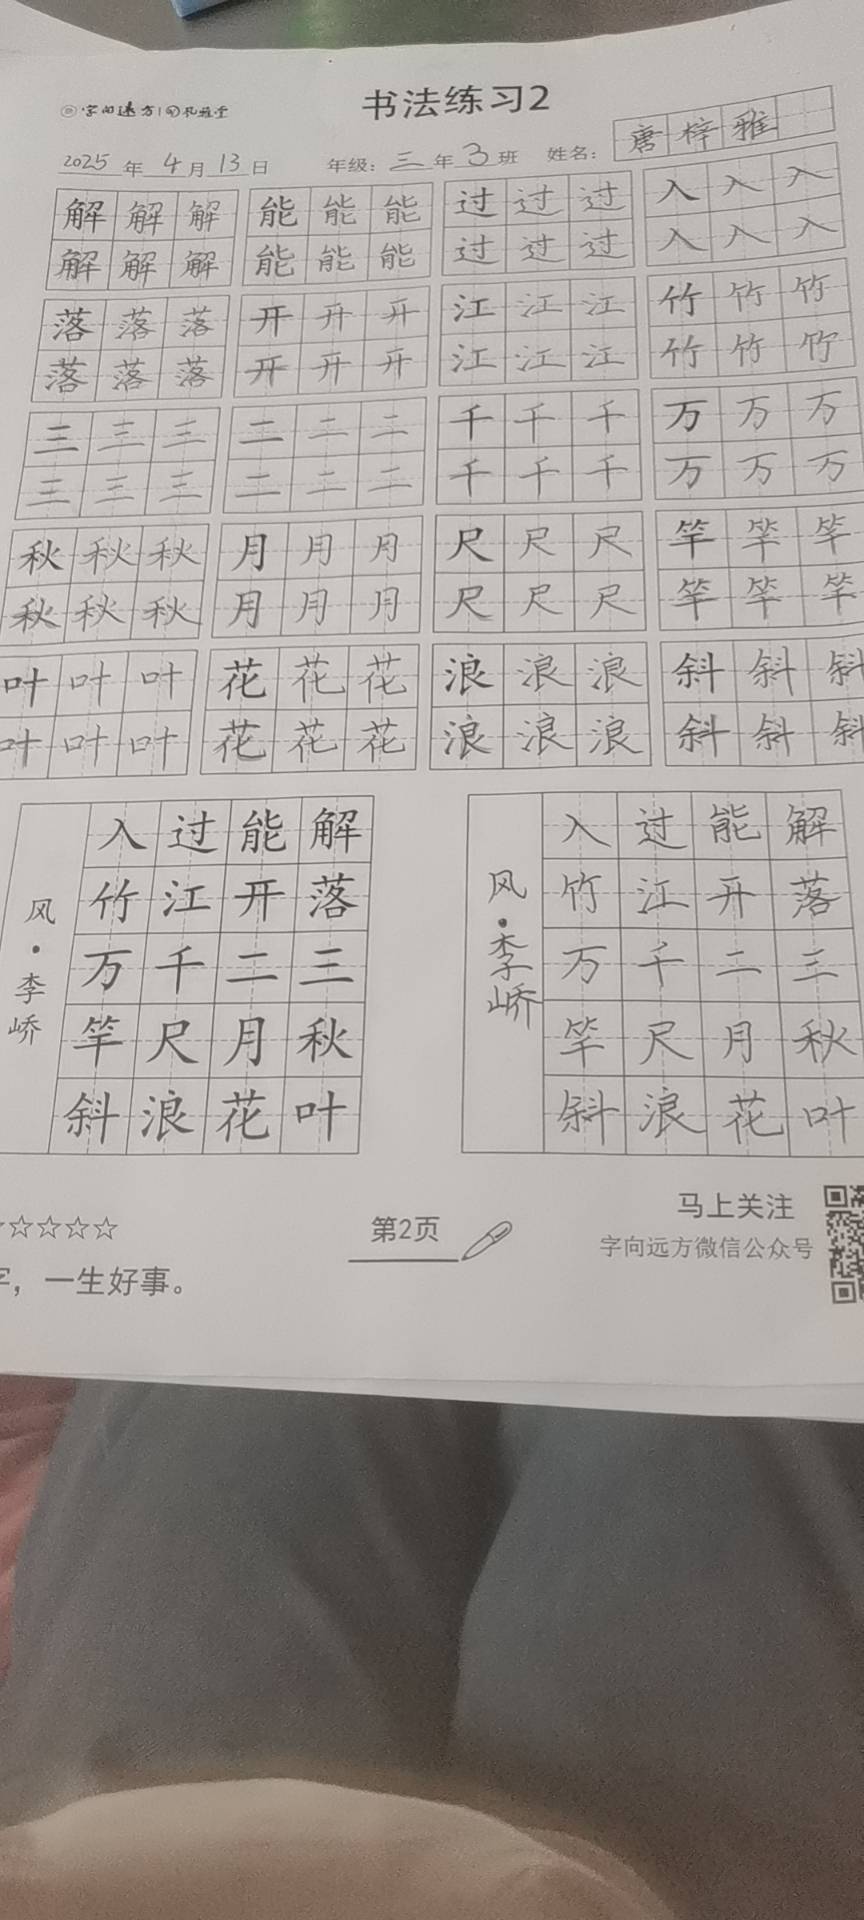 字向远方
书法练习2
2025年4月13日 年级：三年3班 姓名：唐梓雅
解解解 能能能 过过过 入入入
解解解 能能能 过过过 入入入
落落落 开开开 江江江 竹竹竹
落落落 开开开 江江江 竹竹竹
三三三 二二二 千千千 万万万
三三三 二二二 千千千 万万万
秋秋秋 月月月 尺尺尺 竿竿竿
秋秋秋 月月月 尺尺尺 竿竿竿
叶叶叶 花花花 浪浪浪 斜斜斜
叶叶叶 花花花 浪浪浪 斜斜斜
解落三秋叶
能开二月花
过江千尺浪
入竹万竿斜
风·李峤
解落三秋叶
能开二月花
过江千尺浪
入竹万竿斜
风·李峤
☆☆☆☆☆
字，一生好事。
第2页
马上关注
字向远方微信公众号